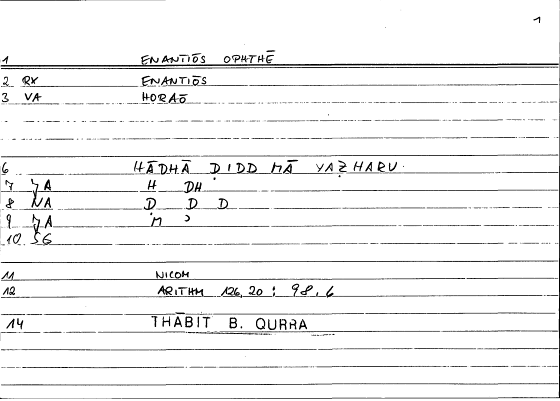 1
1 ENANTĪŌS OPHTHĒ
2 RX ENANTĪŌS
3 VA HORAŌ
6 HĀDHĀ ḌIDD MĀ YAẒHARU.
7 JA H DH
8 NA Ḍ D D
9 JA M ʾ
10 SG
11 NICOM
12 ARITHM 126,20 : 98,6
14 THĀBIT B. QURRA